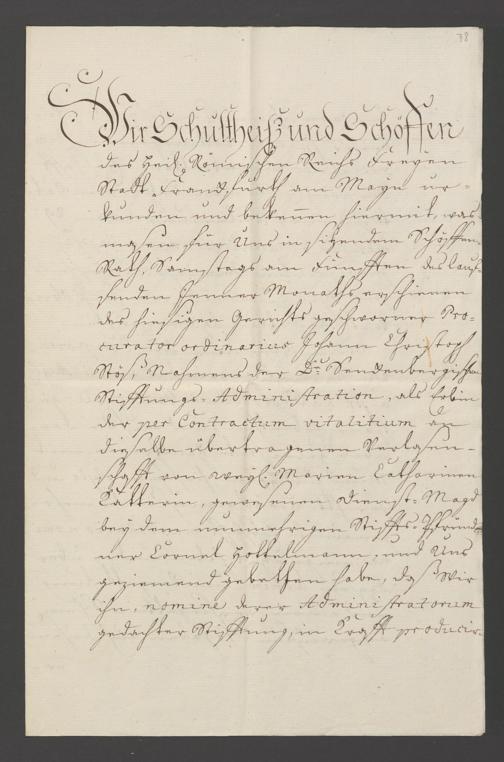 38
Wir Schultheiß und Schöffen
des Heil. Römischen Reichs Freyen
Stadt Franckfurth am Mayn ur-
kunden und bekennen hiermit, was
masen für Uns in sitzendem Schöffen
Rath, Samstags am Fünfften des lauf-
fenden Jenner Monaths erschienen
des hiesigen Gerichts geschworner Pro-
curator ordinarius Johann Christoph
Stöß, Nahmens der Dr. Senckenbergischen
Stifftungs-Administration, als Erbin
der per Contractum vitalitium an
dieselbe übertragenen Verlasen-
schafft von weyl. Marien Catharinen
Kätterin, gewesenen Dienst-Magd
bey dem nunmehrigen Stiffts-Pfründ-
ner Cornel Hottelmann, und Uns
geziemend gebetten habe, daß Wir
ihn, nomine derer Administratorum
gedachter Stifftung, in Krafft producir-